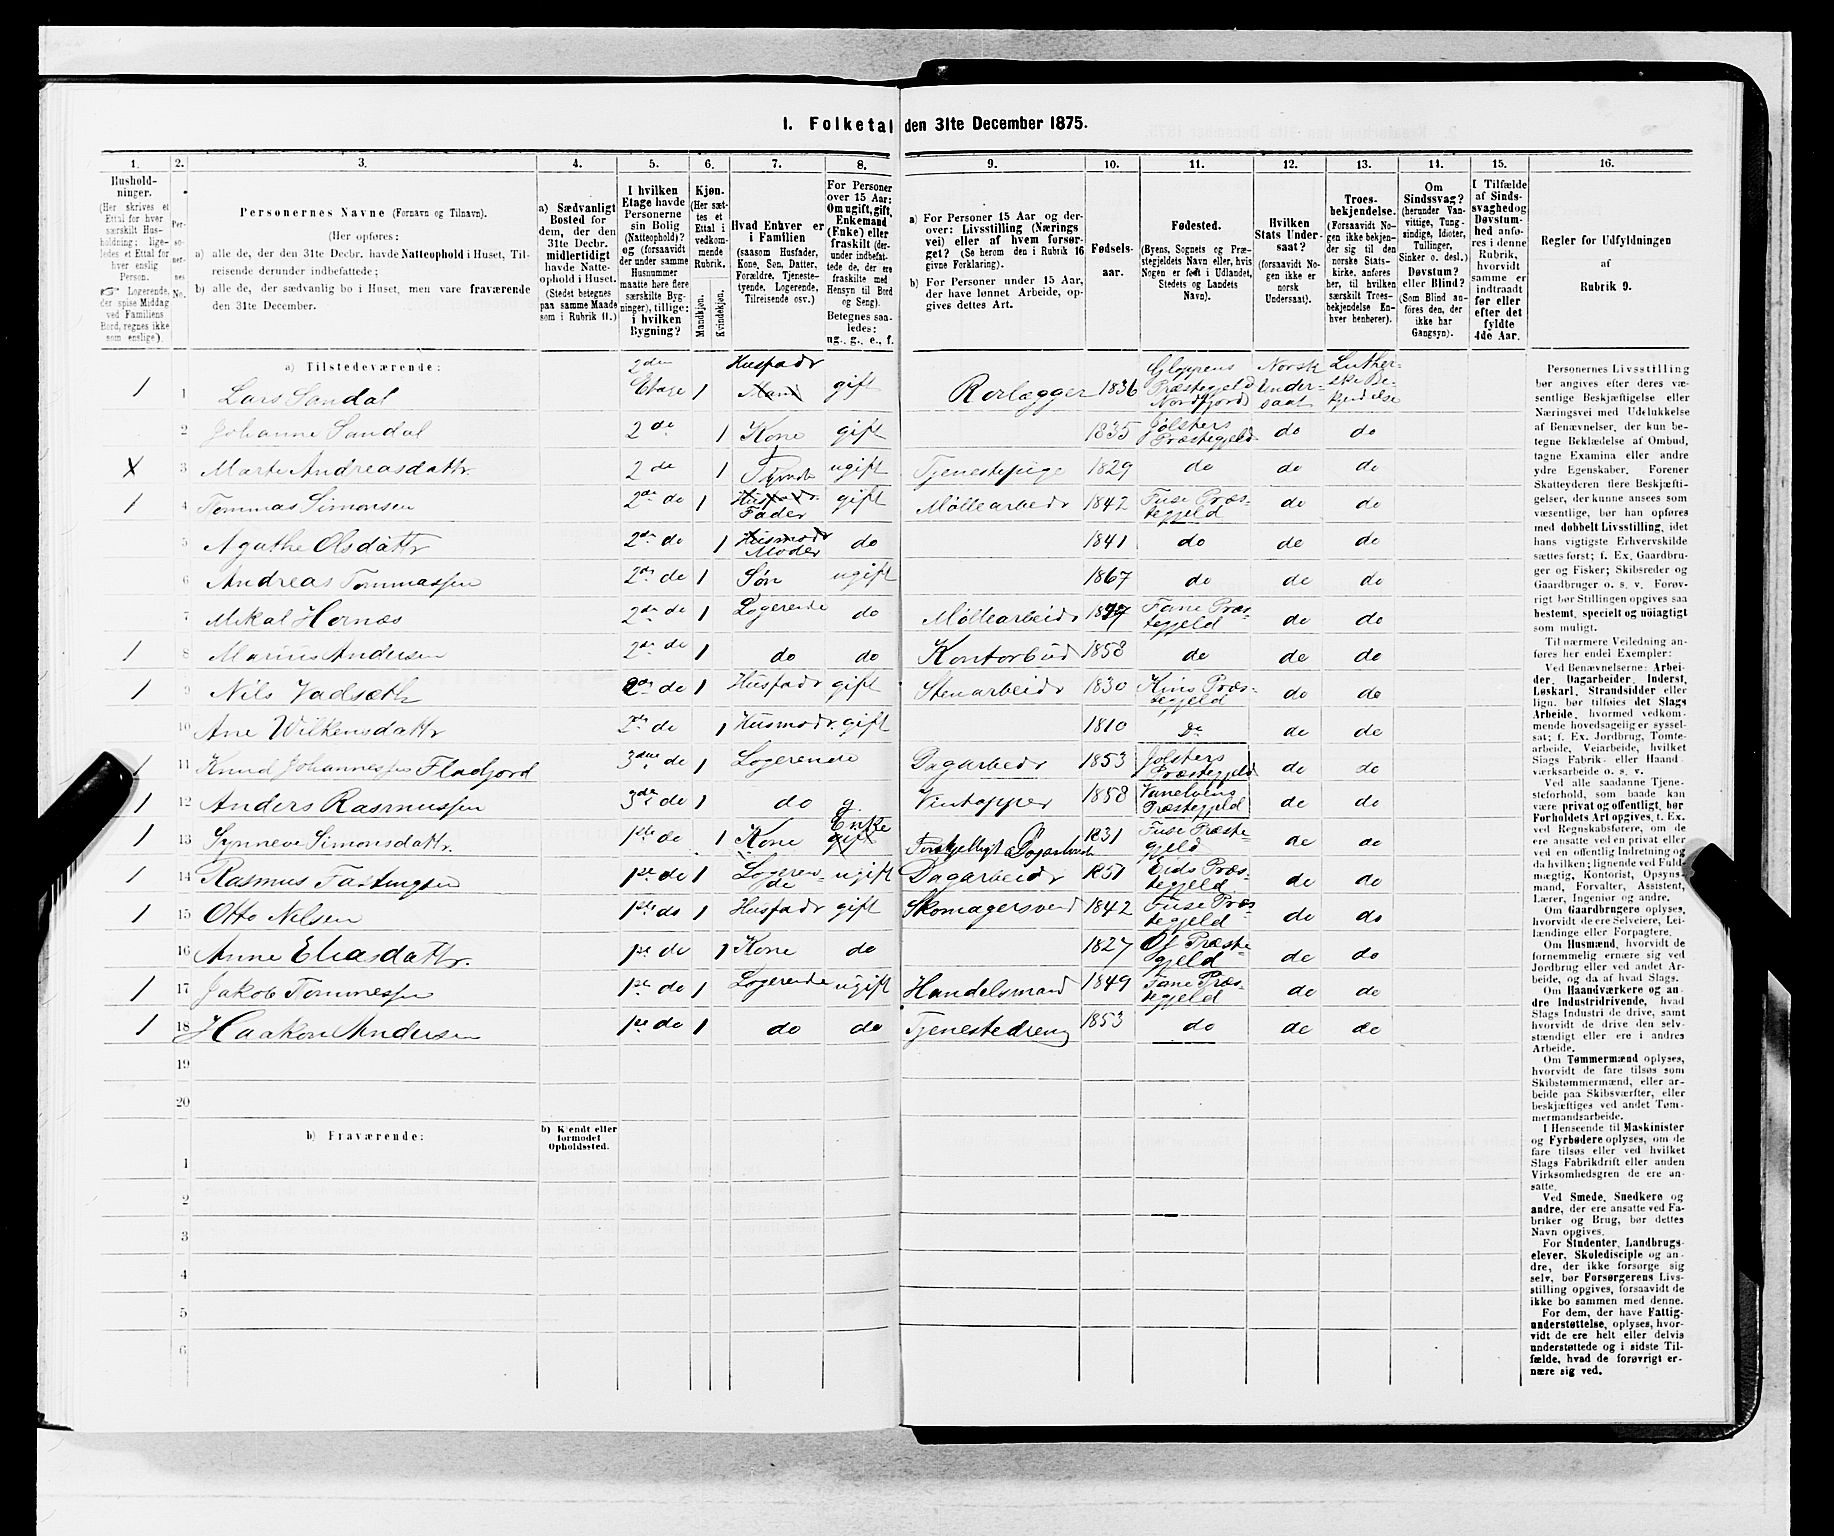 I. Folketal den 31te December 1875.
1. 2. 3. 4. 5. 6. 7. 8. 9. 10. 11. 12. 13. 14. 15. 16.
Hushold-
ninger.
(Her skrives et
Ettal for hver
særskilt Hus-
holdning; lige-
ledes et Ettal for
hver enslig
Person.
☞ Logerende,
der spise Middag
ved Familiens
Bord, regnes ikke
som enslige).
Per-
so-
ner-
nes
No.
Personernes Navne (Fornavn og Tilnavn).
(Her opføres:
a) alle de, der den 31te Decbr. havde Natteophold i Huset, Til-
reisende derunder indbefattede;
b) alle de, der sædvanlig bo i Huset, men vare fraværende
den 31te December.
a) Sædvanligt
Bosted for
dem, der den
31te Decbr.
midlertidigt
havde Natte-
ophold i Huset.
(Stedet betegnes
paa samme Maade
som i Rubrik 11.)
I hvilken
Etage havde
Personerne
sin Bolig
(Natteophold)?
og (forsaavidt
der under samme
Husnummer
maatte høre flere
særskilte Byg-
ninger), tillige:
i hvilken
Bygning?
Kjøn.
(Her sæt-
tes et
Ettal i
vedkom-
mende
Rubrik.
Mandkjøn.
Kvindekjøn.
Hvad Enhver er
i Familien
(saasom Husfader,
Kone, Søn, Datter,
Forældre, Tjeneste-
tyende, Logerende,
Tilreisende osv.)
For Personer
over 15 Aar:
Om ugift, gift,
Enkemand
(Enke) eller
fraskilt (der-
under indbefat-
tede de, der ere
fraskilte med
Hensyn til Bord
og Seng).
Betegnes saa-
ledes:
ug., g., e., f.
a) For Personer 15 Aar og der-
over: Livsstilling (Nærings
vei) eller af hvem forsør-
get? (Se herom den i Rubrik 16
givne Forklaring).
b) For Personer under 15 Aar,
der have lønnet Arbeide, op-
gives dettes Art.
Fødsels-
aar.
Fødested.
(Byens, Sognets og Præ-
stegjeldets Navn eller, hvis
Nogen er født i Udlandet,
Stedets og Landets
Navn).
Hvilken
Stats Under-
saat?
(forsaavidt No-
gen ikke er
norsk
Undersaat).
Troes-
bekjendelse.
(Forsaavidt No-
gen ikke bekjen-
der sig til den
norske Stats-
kirke, anføres
her, til hvilken
særskilt Troes-
bekjendelse En-
hver henhører).
Om
Sindssvag?
(herunder Van-
vittige, Tung-
sindige, Idioter,
Tullinger,
Sinker o. desl.)
Døvstum?
eller Blind?
(Som Blind an-
føres den, der
ikke har
Gangsyn).
I Tilfælde
af Sinds-
svaghed og
Døvstum-
hed anfø-
res i denne
Rubrik,
hvorvidt
samme er
indtraadt
før eller
efter det
fyldte
4de Aar.
Regler for Udfyldningen
af
Rubrik 9.
a) Tilstedeværende:
1 1 Lars Sandal 2den Etage 1 Husfadr Mand gift Rørlægger 1836 Gloppens Præstegjeld Nordfjord Norsk Undersaat Lutherske Bekjendelse
2 Johanne Sandal 2de 1 Kone gift 1835 Jølsters Præstegjeld do do
X 3 Marte Andreasdattr 2 de 1 ugift Tjenestepige 1829 do do do
1 4 Tommas Simonsen 2de do 1 Husfadr Fader gift Møllearbeidr 1842 Fuse Præstegjeld do do
5 Agathe Olsdattr 2de do 1 Husmodr Moder do 1841 do do do
6 Andreas Tommassen 2de do 1 Søn ugift 1867 do do do
7 Mikal Hernæs 2de do 1 Logerende do Møllearbeidr Fane Præstegjeld do do
1 8 Marius Andersen 2de do 1 do do Kontorbud 1858 do do do
1 9 Nils Vadsæth 2de do 1 Husfadr gift Stenarbeidr 1830 Kins Præstegjeld do do
10 Ane Wilkensdattr 2de do 1 Husmodr gift 1810 Do do do
1 11 Knud Johannessen Fladfjord 3die do 1 Logerende Dagarbeidr 1853 Jølsters Præstegjeld do do
1 12 Anders Rasmussen 3die do 1 do g. Vintapper 1858 Vanelvens Præstegjeld do do
1 13 Synneve Simonsdattr. 1ste do 1 Kone Enke gift Forskjelligt Dagarbeide 1831 Fuse Præstegjeld do do
1 14 Rasmus Fastingsen 1ste do 1 Logerende ugift Dagarbeidr 1851 Eids Præstegjeld do do
1 15 Otto Nelsen 1ste do 1 Husfadr gift Skomagersvend 1842 Fuse Præstegjeld do do
16 Anne Eliasdattr. 1ste do 1 Kone do 1827 Os Præstegjeld do do
1 17 Jakob Tommessen 1ste do 1 Logerende ugift Handelsmand 1849 Fane Præstegjeld do do
1 18 Haakon Andersen 1ste do 1 do do Tjenestedreng 1853 do do do
19
20
b) Fraværende:
b) Kjendt eller
formodet
Opholdssted.
1
2
3
4
5
6
Personernes Livsstilling
bør angives efter deres væ-
sentlige Beskjæftigelse eller
Næringsvei med Udelukkelse
af Benævnelser, der kun be-
tegne Beklædelse af Ombud,
tagne Examina eller andre
ydre Egenskaber. Forener
Skatteyderen flere Beskjæfti-
gelser, der kunne ansees som
væsentlige, bør han opføres
med dobbelt Livsstilling, idet
hans vigtigste Erhvervskilde
sættes først; f. Ex. Gaardbru-
ger og Fisker; Skibsreder og
Gaardbruger o. s. v. Forøv-
rigt bør Stillingen opgives saa
bestemt, specielt og nöiagtigt
som muligt.
Til nærmere Veiledning an-
føres her endel Exempler:
Ved Benævnelserne: Arbei-
der, Dagarbeider, Inderst,
Løskarl, Strandsidder eller
lign. bør tilføies det Slags
Arbeide, hvormed vedkom-
mende hovedsagelig er syssel-
sat; f. Ex. Jordbrug, Tomte-
arbeide, Veiarbeide, hvilket
Slags Fabrik- eller Haand
værksarbeide o. s. v.
Ved alle saadanne Tjene-
steforhold, som baade kan
være privat og offentligt, bør
Forholdets Art opgives, f. Ex.
ved Regnskabsførere, om de
ere ansatte ved en privat eller
ved en offentlig Indretning og
da hvilken; lignende ved Fuld-
mægtig, Kontorist, Opsyns-
mand, Forvalter, Assistent,
Lærer, Ingeniør og andre.
Om Gaardbrugere oplyses,
hvorvidt de ere Selveiere, Lei-
lændinge eller Forpagtere.
Om Husmænd, hvorvidt de
fornemmelig ernære sig ved
Jordbrug eller ved andet Ar-
beide, og da af hvad Slags.
Om Haandværkere og an-
dre Industridrivende, hvad
Slags Industri de drive, samt
hvorvidt de drive den selv-
stændigt eller ere i andres
Arbeide.
Om Tømmermænd oplyses,
hvorvidt de fare tilsøs som
Skibstømmermænd, eller ar-
beide paa Skibsværfter, eller
beskjæftiges ved andet Tøm-
mermandsarbeide.
I Henseende til Maskinister
og Fyrbødere oplyses, om de
fare tilsøs eller ved hvilket
Slags Fabrikdrift eller anden
Virksomhedsgren de ere an-
satte.
Ved Smede, Snedkere og
andre, der ere ansatte ved Fa-
briker og Brug, bør dettes
Navn opgives.
For Studenter, Landbrugs-
elever, Skoledisciple og an-
dre, der ikke forsørge sig
selv, bør Forsørgerens Livs-
stilling opgives, forsaavidt de
ikke bo sammen med denne.
For dem, der have Fattig-
understøttelse, oplyses, hvor-
vidt de ere helt eller delvis
understøttede og i sidste Til-
fælde, hvad de forøvrigt er-
nære sig ved.